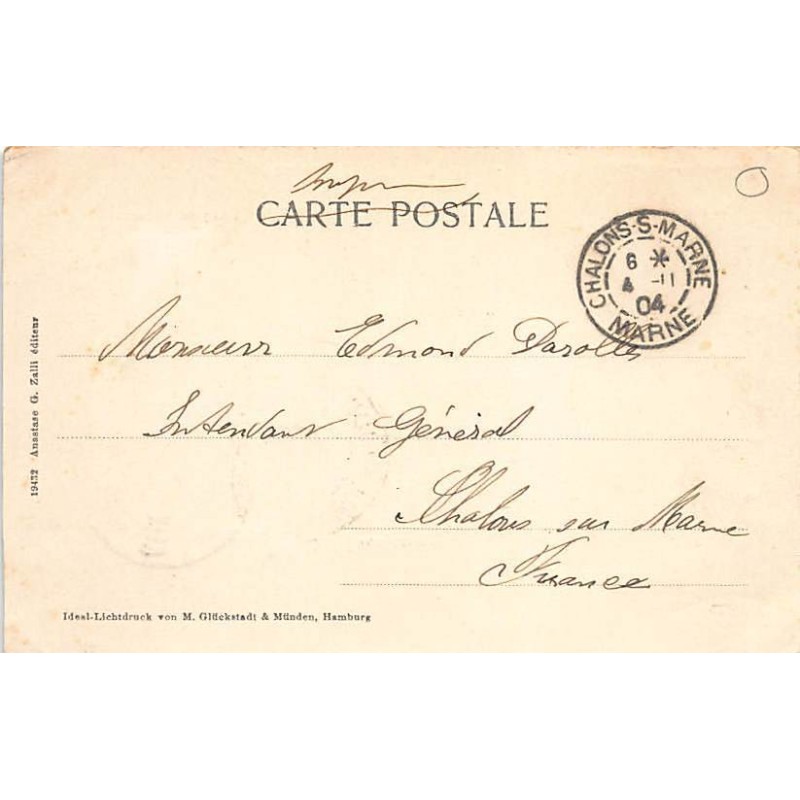 CARTE POSTALE
CHALONS-S-MARNE
6 *
4 -11
04
MARNE
Monsieur Edmond Darolles
Intendant Général
Chalons sur Marne
France
19432 Anastase G. Zalli éditeur
Ideal-Lichtdruck von M. Glückstadt & Münden, Hamburg